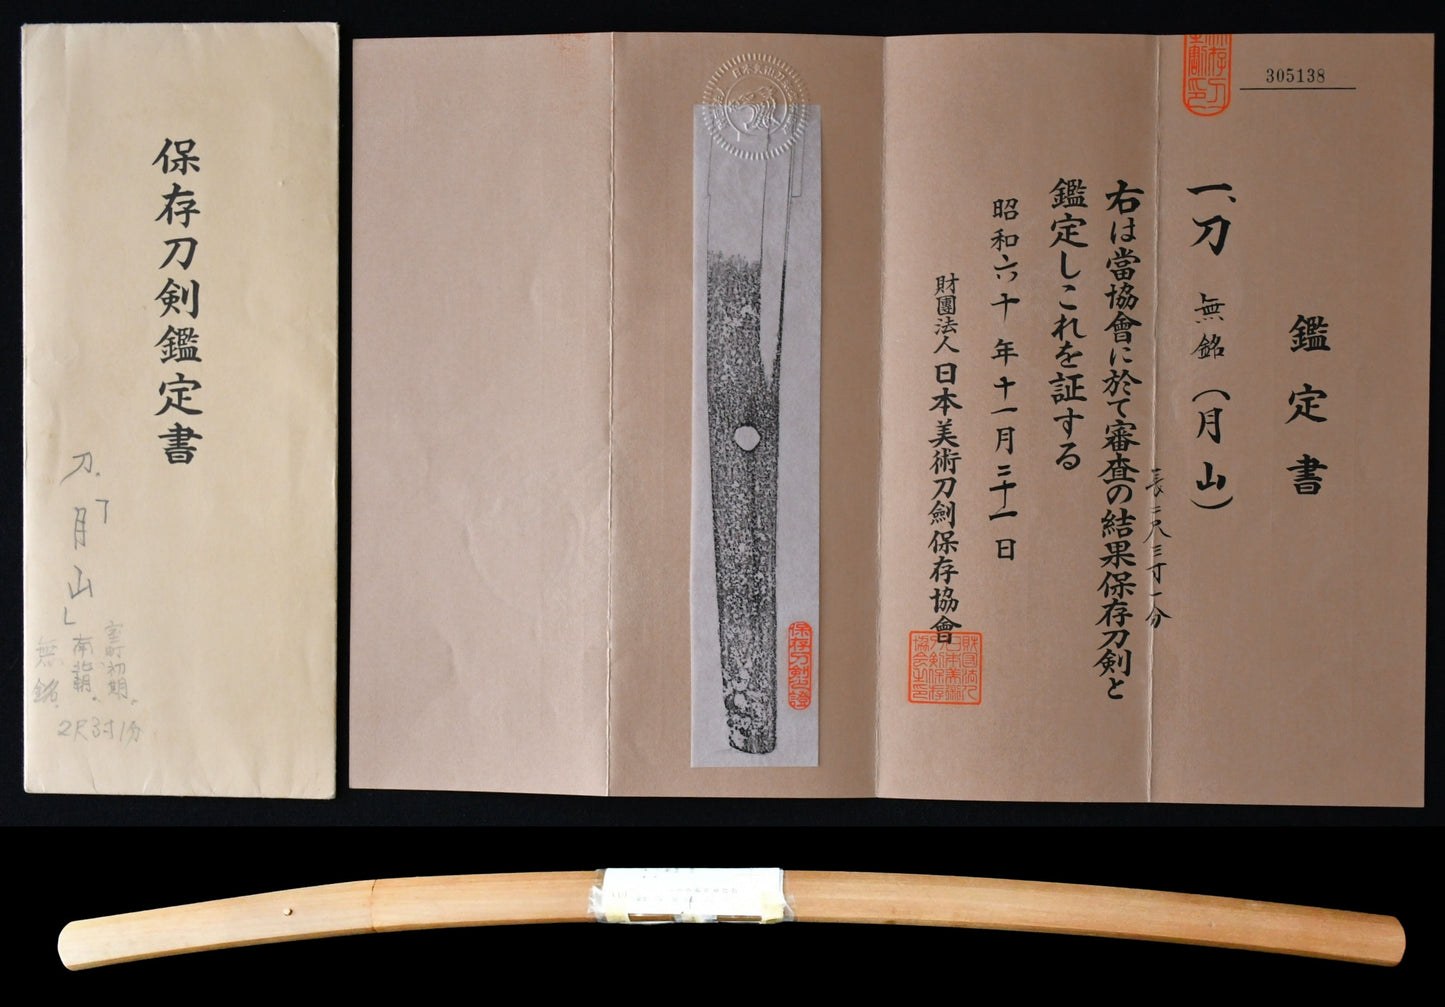 保存刀剣鑑定書
刀.
「月山」
室町初期.
南北朝.
無銘.
2尺3寸1分
305138
鑑定書
一、刀 無銘（月山）
長二尺三寸一分
右は當協會に於て審査の結果保存刀剣と
鑑定しこれを証する
昭和六十年十一月三十一日
財團法人日本美術刀劍保存協會
保存刀剣證